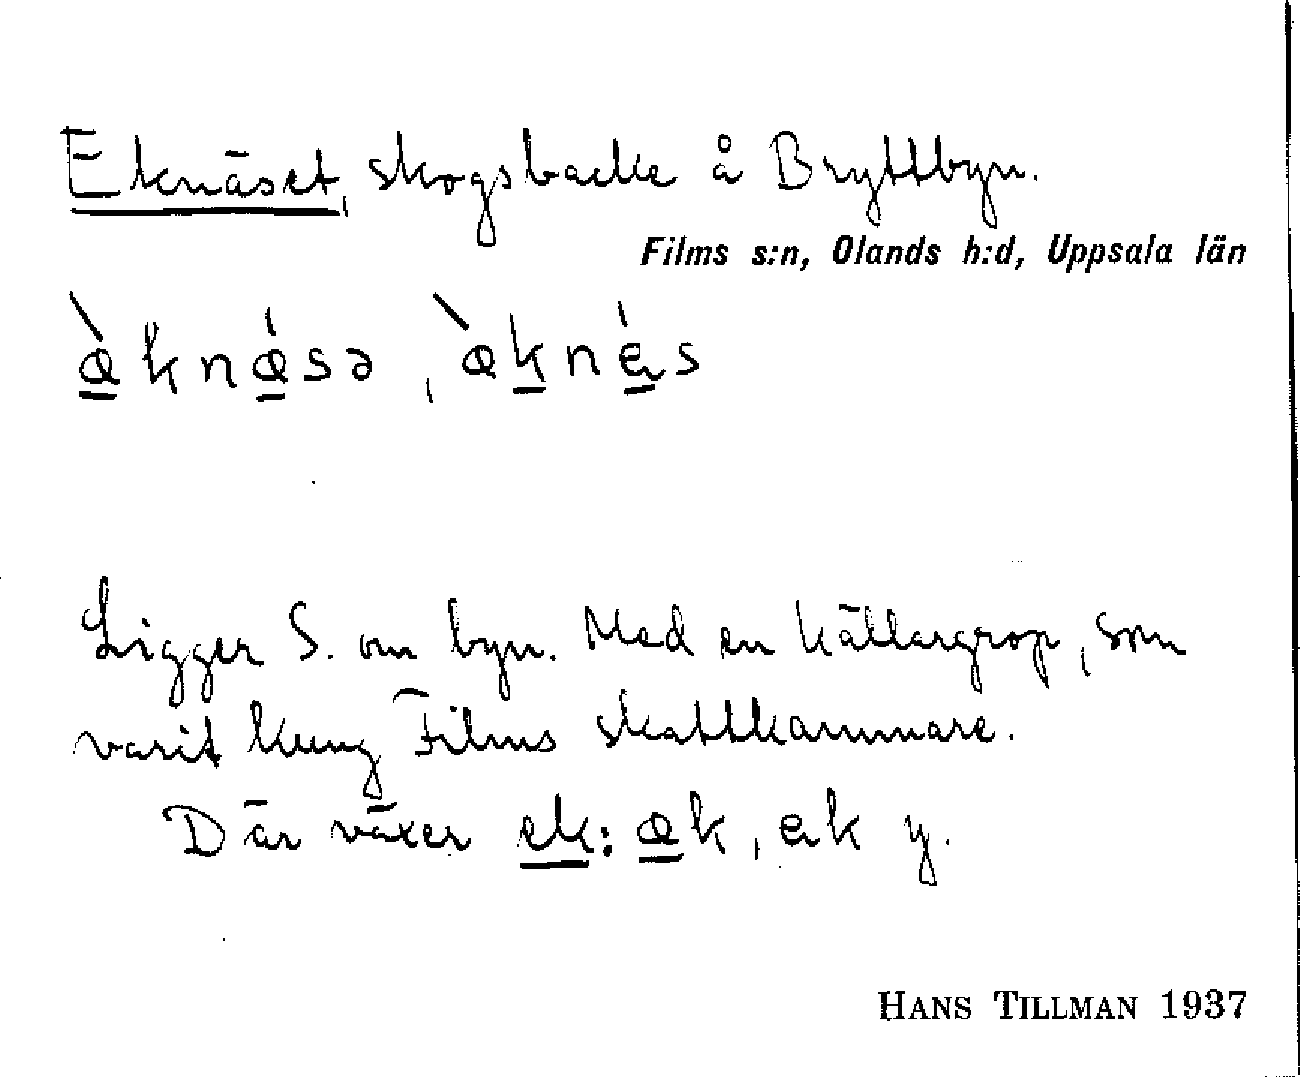 Eknäset, skogsbacke å Bryttbyn.
Films s:n, Olands h:d, Uppsala län
æ̀knǽsə, æ̀knés
Ligger S. om byn. Med en källargrop, som
varit Kung Films skattkammare.
Där växer ek: æk, ek y.
HANS TILLMAN 1937